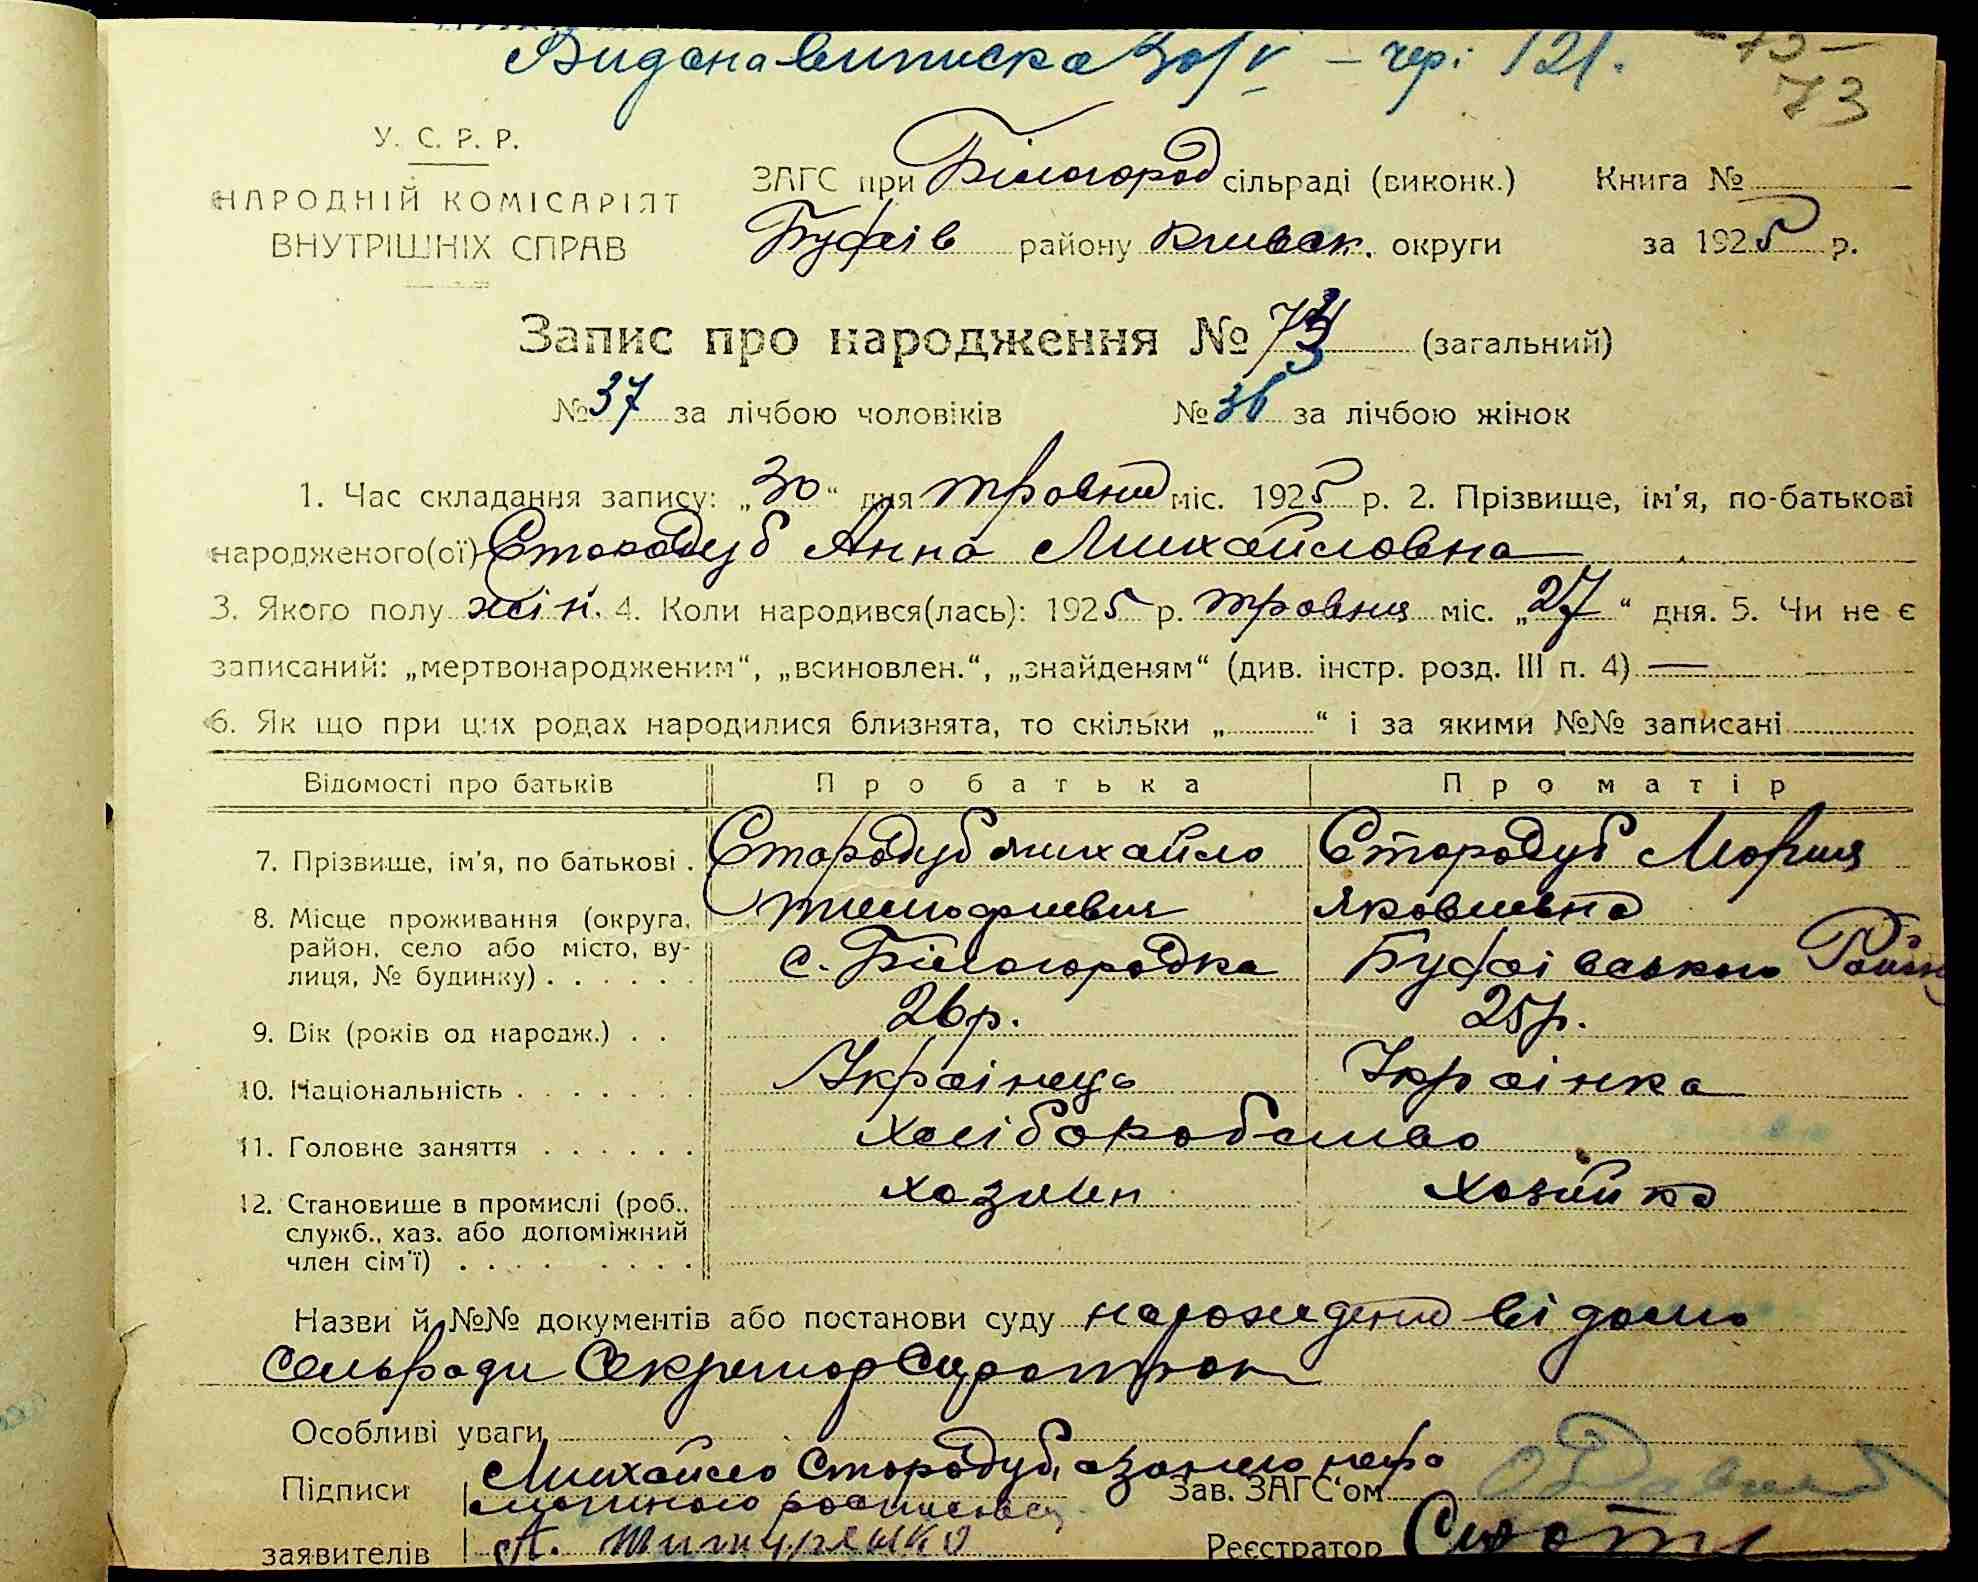 Видана виписка 30/V – чер: 121.
– 73 –
73
У. С. Р. Р.
НАРОДНІЙ КОМІСАРІЯТ
ВНУТРІШНІХ СПРАВ
ЗАГС при Білогород сільраді (виконк.) Книга №
Буфаів району Київськ. округи за 1925 р.
Запис про народження № 73 (загальний)
№ 37 за лічбою чоловіків № 36 за лічбою жінок
1. Час складання запису: „30“ дня травня міс. 1925 р. 2. Прізвище, ім'я, по-батькові
народженого(ої) Стародуб Анна Михайловна
3. Якого полу жін. 4. Коли народився(лась): 1925 р. травня міс. „27“ дня. 5. Чи не є
записаний: „мертвонародженим“, „всиновлен.“, „знайденям“ (див. інстр. розд. III п. 4) —
6. Як що при цих родах народилися близнята, то скільки „ “ і за якими №№ записані
Відомості про батьків Про батька Про матір
7. Прізвище, ім'я, по батькові . Стародуб Михайло Стародуб Мария
8. Місце проживання (округа, Тимофиевич Яковлевна
район, село або місто, ву-
лиця, № будинку) . . . . . . с. Білогородка Буфаівського Району
9. Вік (років од народж.) . . 26 р. 25 р.
10. Національність . . . . . . . Українець Українка
11. Головне заняття . . . . . . Хліборобство
12. Становище в промислі (роб., хазяин хазяйка
служб., хаз. або допоміжний
член сім'ї) . . . . . . . .
Назви й №№ документів або постанови суду нарождения відомо
сельради Секретар
Особливі уваги
Підписи Михайло Стародуб, а за него негра
мотного росписавсь Зав. ЗАГС'ом
заявителів А. Реєстратор